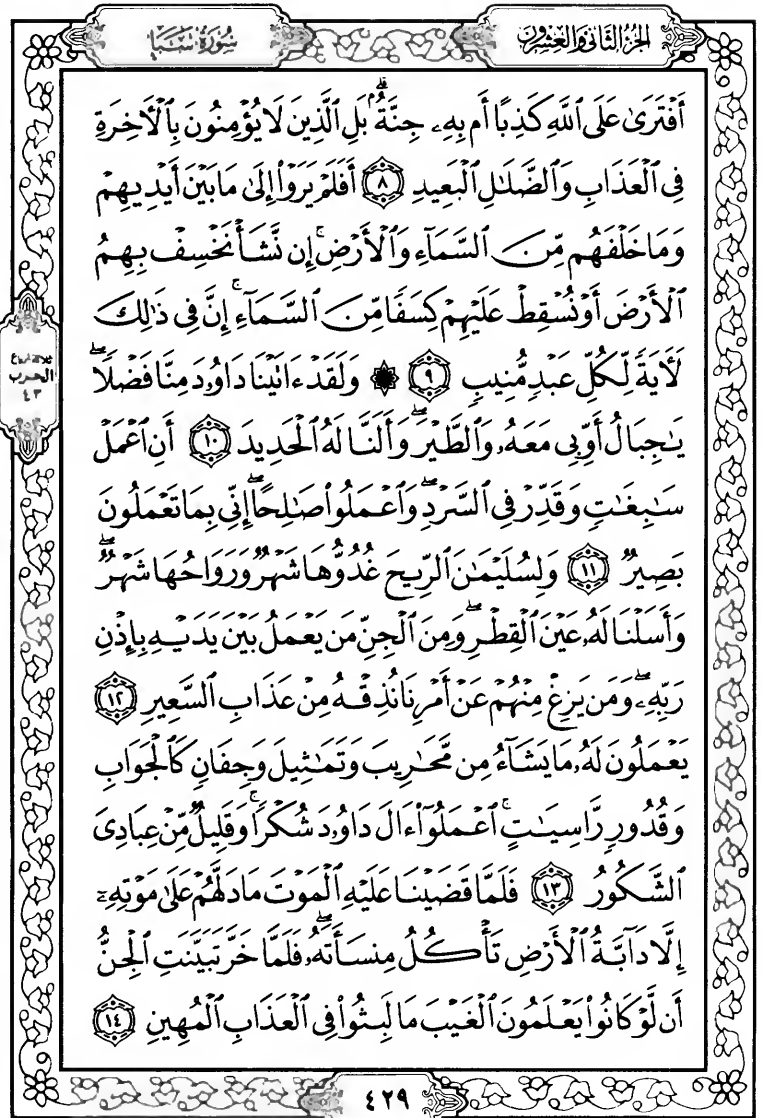 الجزء الثاني والعشرون
سورة سبأ
أَفْتَرَىٰ عَلَى ٱللَّهِ كَذِبًا أَم بِهِۦ جِنَّةٌۢ ۗ بَلِ ٱلَّذِينَ لَا يُؤْمِنُونَ بِٱلْأَخِرَةِ
فِى ٱلْعَذَابِ وَٱلضَّلَـٰلِ ٱلْبَعِيدِ ٨ أَفَلَمْ يَرَوْا۟ إِلَىٰ مَا بَيْنَ أَيْدِيهِمْ
وَمَا خَلْفَهُم مِّنَ ٱلسَّمَآءِ وَٱلْأَرْضِ ۚ إِن نَّشَأْ نَخْسِفْ بِهِمُ
ٱلْأَرْضَ أَوْ نُسْقِطْ عَلَيْهِمْ كِسَفًا مِّنَ ٱلسَّمَآءِ ۚ إِنَّ فِى ذَٰلِكَ
لَأَيَةً لِّكُلِّ عَبْدٍ مُّنِيبٍ ٩ ۞ وَلَقَدْ ءَاتَيْنَا دَاوُۥدَ مِنَّا فَضْلًا ۖ
يَـٰجِبَالُ أَوِّبِى مَعَهُۥ وَٱلطَّيْرَ ۖ وَأَلَنَّا لَهُ ٱلْحَدِيدَ ١٠ أَنِ ٱعْمَلْ
سَـٰبِغَـٰتٍ وَقَدِّرْ فِى ٱلسَّرْدِ ۖ وَٱعْمَلُوا۟ صَـٰلِحًا ۖ إِنِّى بِمَا تَعْمَلُونَ
بَصِيرٌ ١١ وَلِسُلَيْمَـٰنَ ٱلرِّيحَ غُدُوُّهَا شَهْرٌ وَرَوَاحُهَا شَهْرٌ ۖ
وَأَسَلْنَا لَهُۥ عَيْنَ ٱلْقِطْرِ ۖ وَمِنَ ٱلْجِنِّ مَن يَعْمَلُ بَيْنَ يَدَيْهِ بِإِذْنِ
رَبِّهِۦ ۖ وَمَن يَزِغْ مِنْهُمْ عَنْ أَمْرِنَا نُذِقْهُ مِنْ عَذَابِ ٱلسَّعِيرِ ١٢
يَعْمَلُونَ لَهُۥ مَا يَشَآءُ مِن مَّحَـٰرِيبَ وَتَمَـٰثِيلَ وَجِفَانٍ كَٱلْجَوَابِ
وَقُدُورٍ رَّاسِيَـٰتٍ ۚ ٱعْمَلُوٓا۟ ءَالَ دَاوُۥدَ شُكْرًا ۚ وَقَلِيلٌ مِّنْ عِبَادِىَ
ٱلشَّكُورُ ١٣ فَلَمَّا قَضَيْنَا عَلَيْهِ ٱلْمَوْتَ مَا دَلَّهُمْ عَلَىٰ مَوْتِهِۦٓ
إِلَّا دَآبَّةُ ٱلْأَرْضِ تَأْكُلُ مِنسَأَتَهُۥ ۖ فَلَمَّا خَرَّ تَبَيَّنَتِ ٱلْجِنُّ
أَن لَّوْ كَانُوا۟ يَعْلَمُونَ ٱلْغَيْبَ مَا لَبِثُوا۟ فِى ٱلْعَذَابِ ٱلْمُهِينِ ١٤
ثلاثة أرباع
الحزب
٤٣
٤٢٩